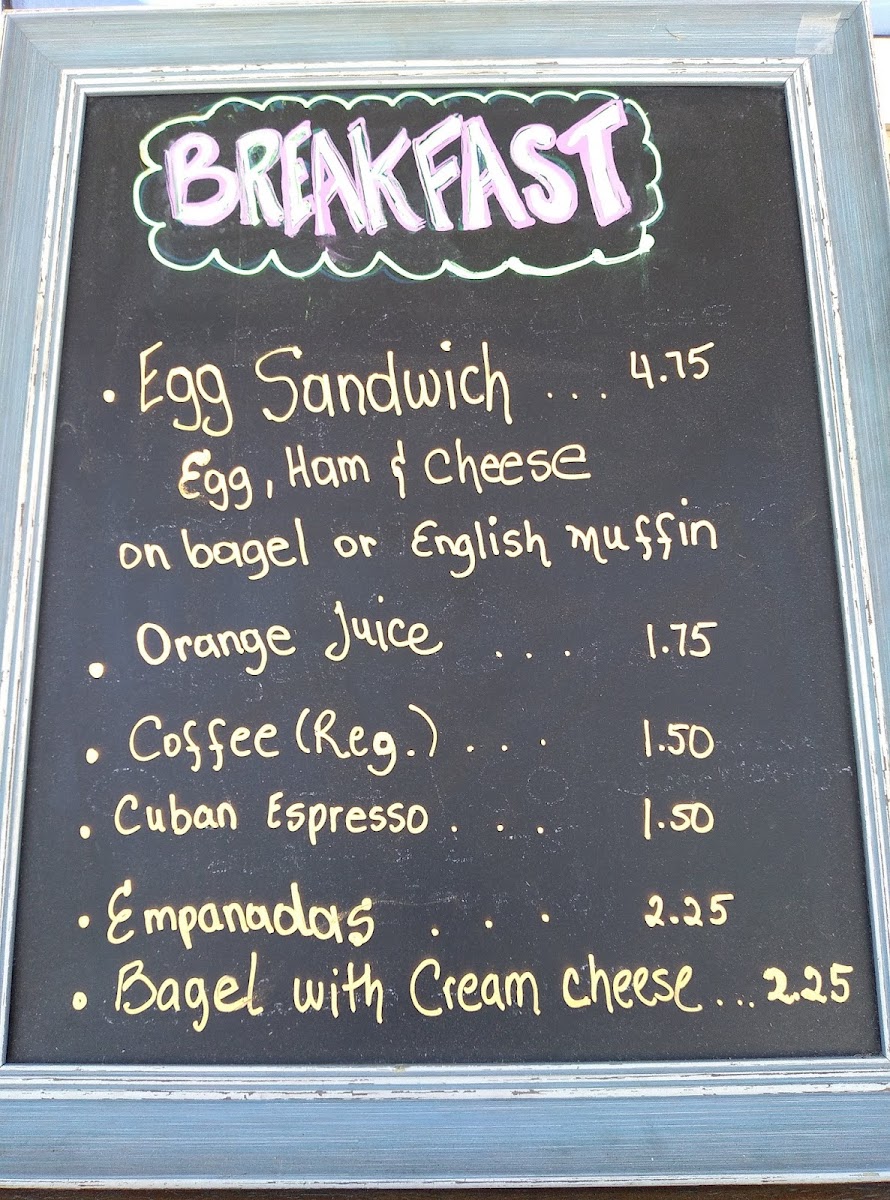 BREAKFAST
• Egg Sandwich ... 4.75
Egg, Ham & Cheese
on bagel or English muffin
• Orange Juice ... 1.75
• Coffee (Reg.) ... 1.50
• Cuban Espresso ... 1.50
• Empanadas ... 2.25
• Bagel with Cream cheese ... 2.25